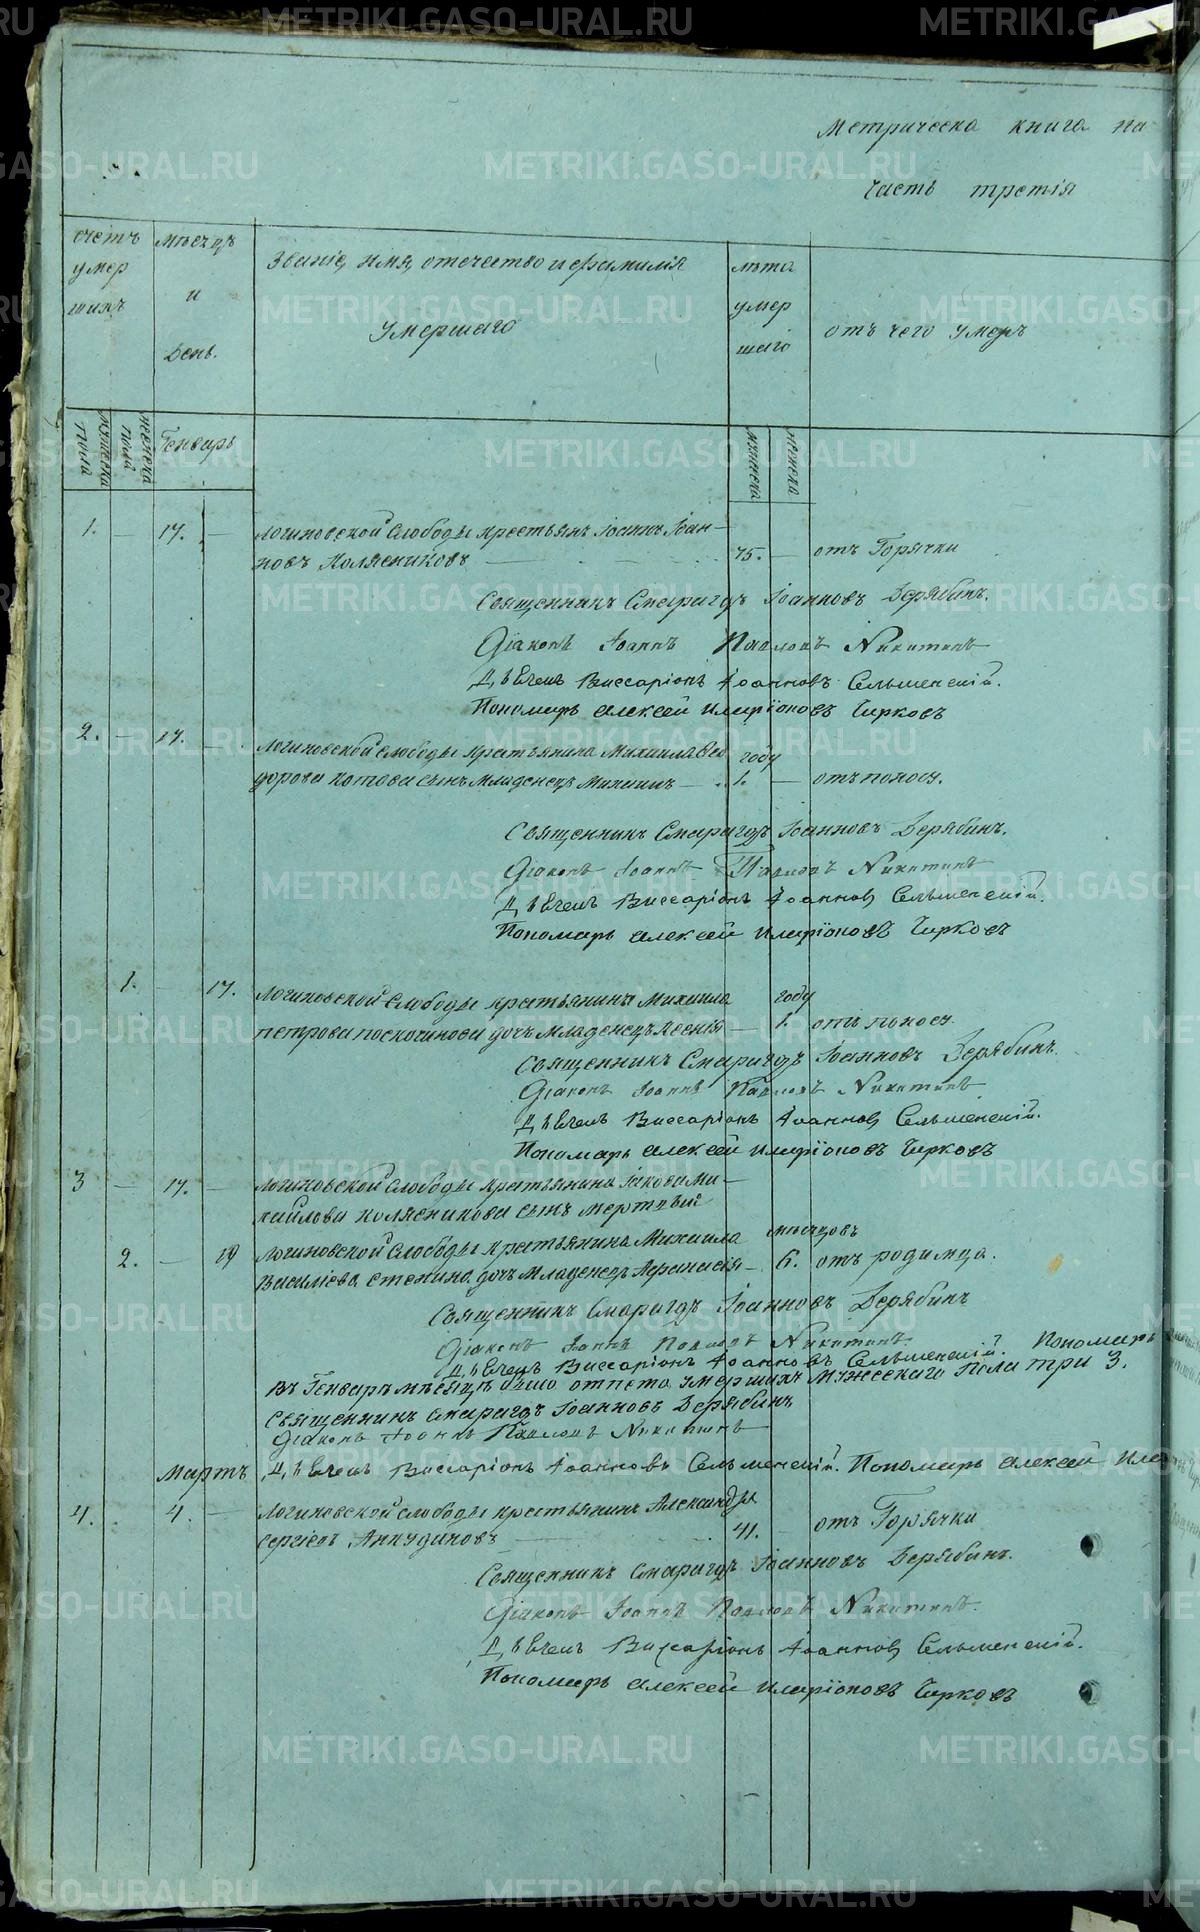 Метрическа книга на
Часть третія
счетъ умершихъ
мѣсецъ и день.
Званіе, имя, отечество и фамилія умершаго
лѣта умершаго
отъ чего умеръ
мужеска пола
женска пола
Генварь
мужеска
женска
1. — 17. — Логиновской слободы крестьянъ Іоаннъ Іоан-
новъ Колясниковъ — 75. — отъ Горячки
Священникъ Смарагдъ Іоанновъ Дерябинъ.
Діаконъ Іоаннъ Павловъ Никитинъ
Дьячекъ Виссаріонъ Іоанновъ Сельменскій.
Пономарь Алексей Иларіоновъ Чирковъ
2. — 17. — Логиновской слободы крестьянина Михаила Фео году
дорова Котова сынъ Младенецъ Михаилъ — 1. — отъ поноса.
Священникъ Смарагдъ Іоанновъ Дерябинъ.
Діаконъ Іоаннъ Павловъ Никитинъ
Дьячекъ Виссаріонъ Іоаннов Сельменскій.
Пономарь Алексей Иларіоновъ Чирковъ
1. — 17. Логиновской слободы крестьянина Михаила году
Петрова дочь Младенецъ — 1. отъ поноса.
Священникъ Смарагдъ Іоанновъ Дерябинъ.
Діаконъ Іоаннъ Павловъ Никитинъ
Дьячекъ Виссаріонъ Іоаннов Сельменскій.
Пономарь Алексей Иларіоновъ Чирковъ
3 — 17. — Логиновской слободы крестьянина Іакова Ми-
хайлова Колясникова сынъ мертвый
2. — 19 Логиновской слободы крестьянина Михаила мѣсяцовъ
Василіева дочь Младенецъ Афанасія — 6. отъ родимца.
Священникъ Смарагдъ Іоанновъ Дерябинъ
Діаконъ Іоаннъ Павловъ Никитинъ.
Дьячекъ Виссаріонъ Іоанновъ Сельменскій. Пономарь
Въ Генварѣ мѣсяцѣ отпето умершихъ мужескаго пола три 3.
Священникъ Смарагдъ Іоанновъ Дерябинъ
Діаконъ Іоаннъ Павловъ Никитинъ
Мартъ Дьячекъ Виссаріонъ Іоанновъ Сельменскій. Пономарь Алексей Илар
4. 4. — Логиновской слободы крестьянинъ Александръ
Сергіевъ Анкудиновъ — 41. — отъ Горячки
Священникъ Смарагдъ Іоанновъ Дерябинъ.
Діаконъ Іоаннъ Павловъ Никитинъ.
Дьячекъ Виссаріонъ Іоаннов Сельменскій.
Пономарь Алексей Иларіоновъ Чирковъ
METRIKI.GASO-URAL.RU